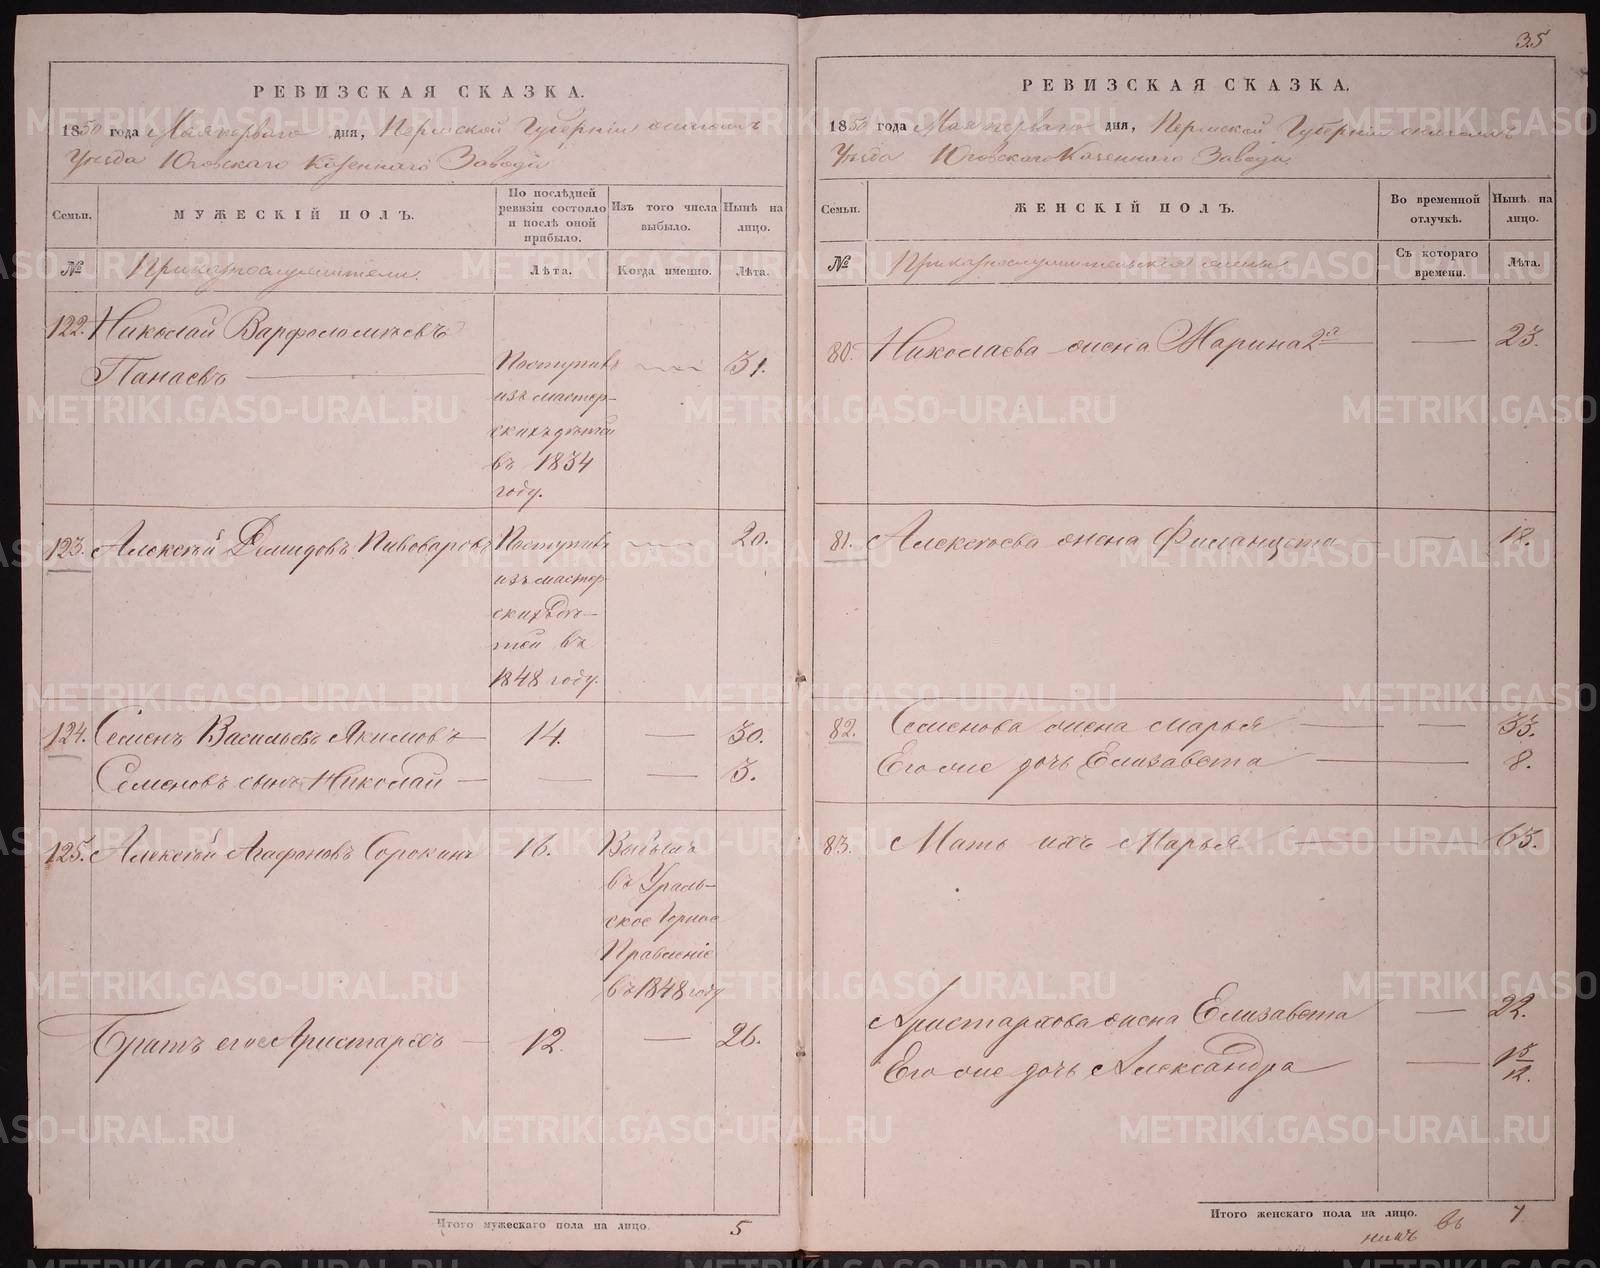 35
РЕВИЗСКАЯ СКАЗКА.
1850 года Мая перваго дня, Пермской Губерніи
Уѣзда Юговскаго Казеннаго Завода
Семьи.
МУЖЕСКІЙ ПОЛЪ.
По послѣдней ревизіи состояло и послѣ оной прибыло.
Изъ того числа выбыло.
Нынѣ на лицо.
№
Приказнослужители.
Лѣта.
Когда именно.
Лѣта.
122. Николай Варфоломѣевъ
Панаевъ
Поступилъ 31.
изъ мастер-
скихъ дѣтей
въ 1834
году.
123. Алексѣй Демидовъ Пивоваровъ Поступилъ 20.
изъ мастер-
скихъ дѣ-
тей въ
1848 году.
124. Семенъ Васильевъ Якимовъ 14. 30.
Семеновъ сынъ Николай 3.
125. Алексѣй Агафоновъ Сорокинъ 16. Выбылъ
въ Ураль-
ское Горное
Правленіе
въ 1848 году
Братъ его Аристархъ 12. 26.
Итого мужескаго пола на лицо. 5
РЕВИЗСКАЯ СКАЗКА.
1850 года Мая перваго дня, Пермской Губерніи
Уѣзда Юговскаго Казеннаго Завода
Семьи.
ЖЕНСКІЙ ПОЛЪ.
Во временной отлучкѣ.
Нынѣ на лицо.
№
Приказнослужительскія жены
Съ котораго времени.
Лѣта.
80. Николаева жена Марина 2я 23.
81. Алексѣева жена 18.
82. Семенова жена Марья 33.
Его же дочь Елизавета 8.
83. Мать ихъ Марья 63.
Аристархова жена Елизавета 22.
Его же дочь Александра
Итого женскаго пола на лицо. 7
METRIKI.GASO-URAL.RU